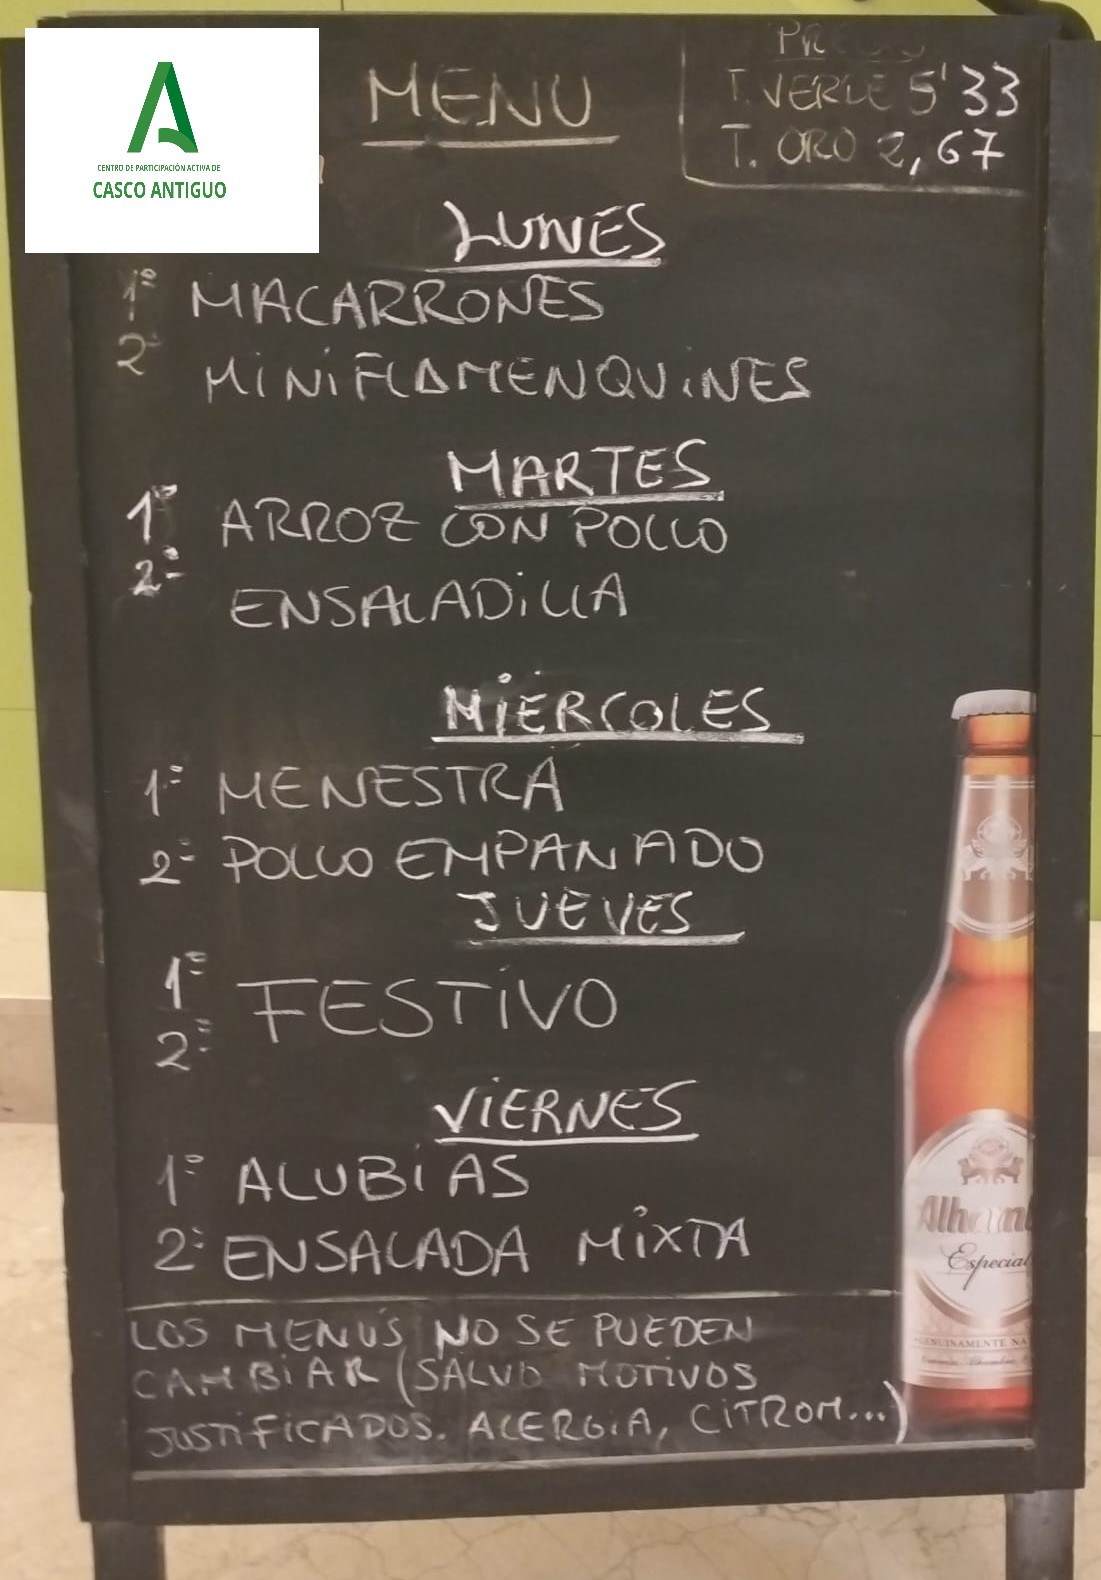 CENTRO DE PARTICIPACIÓN ACTIVA DE
CASCO ANTIGUO
MENU
T. VERDE 5'33
T. ORO 2,67
LUNES
1º MACARRONES
2º MINIFLAMENQUINES
MARTES
1º ARROZ CON POLLO
2º ENSALADILLA
MIÉRCOLES
1º MENESTRA
2º POLLO EMPANADO
JUEVES
1º FESTIVO
2º
VIERNES
1º ALUBIAS
2º ENSALADA MIXTA
LOS MENÚS NO SE PUEDEN
CAMBIAR (SALVO MOTIVOS
JUSTIFICADOS. ALERGIA, CITROM...)
Alham
Especial
GENUINAMENTE NA